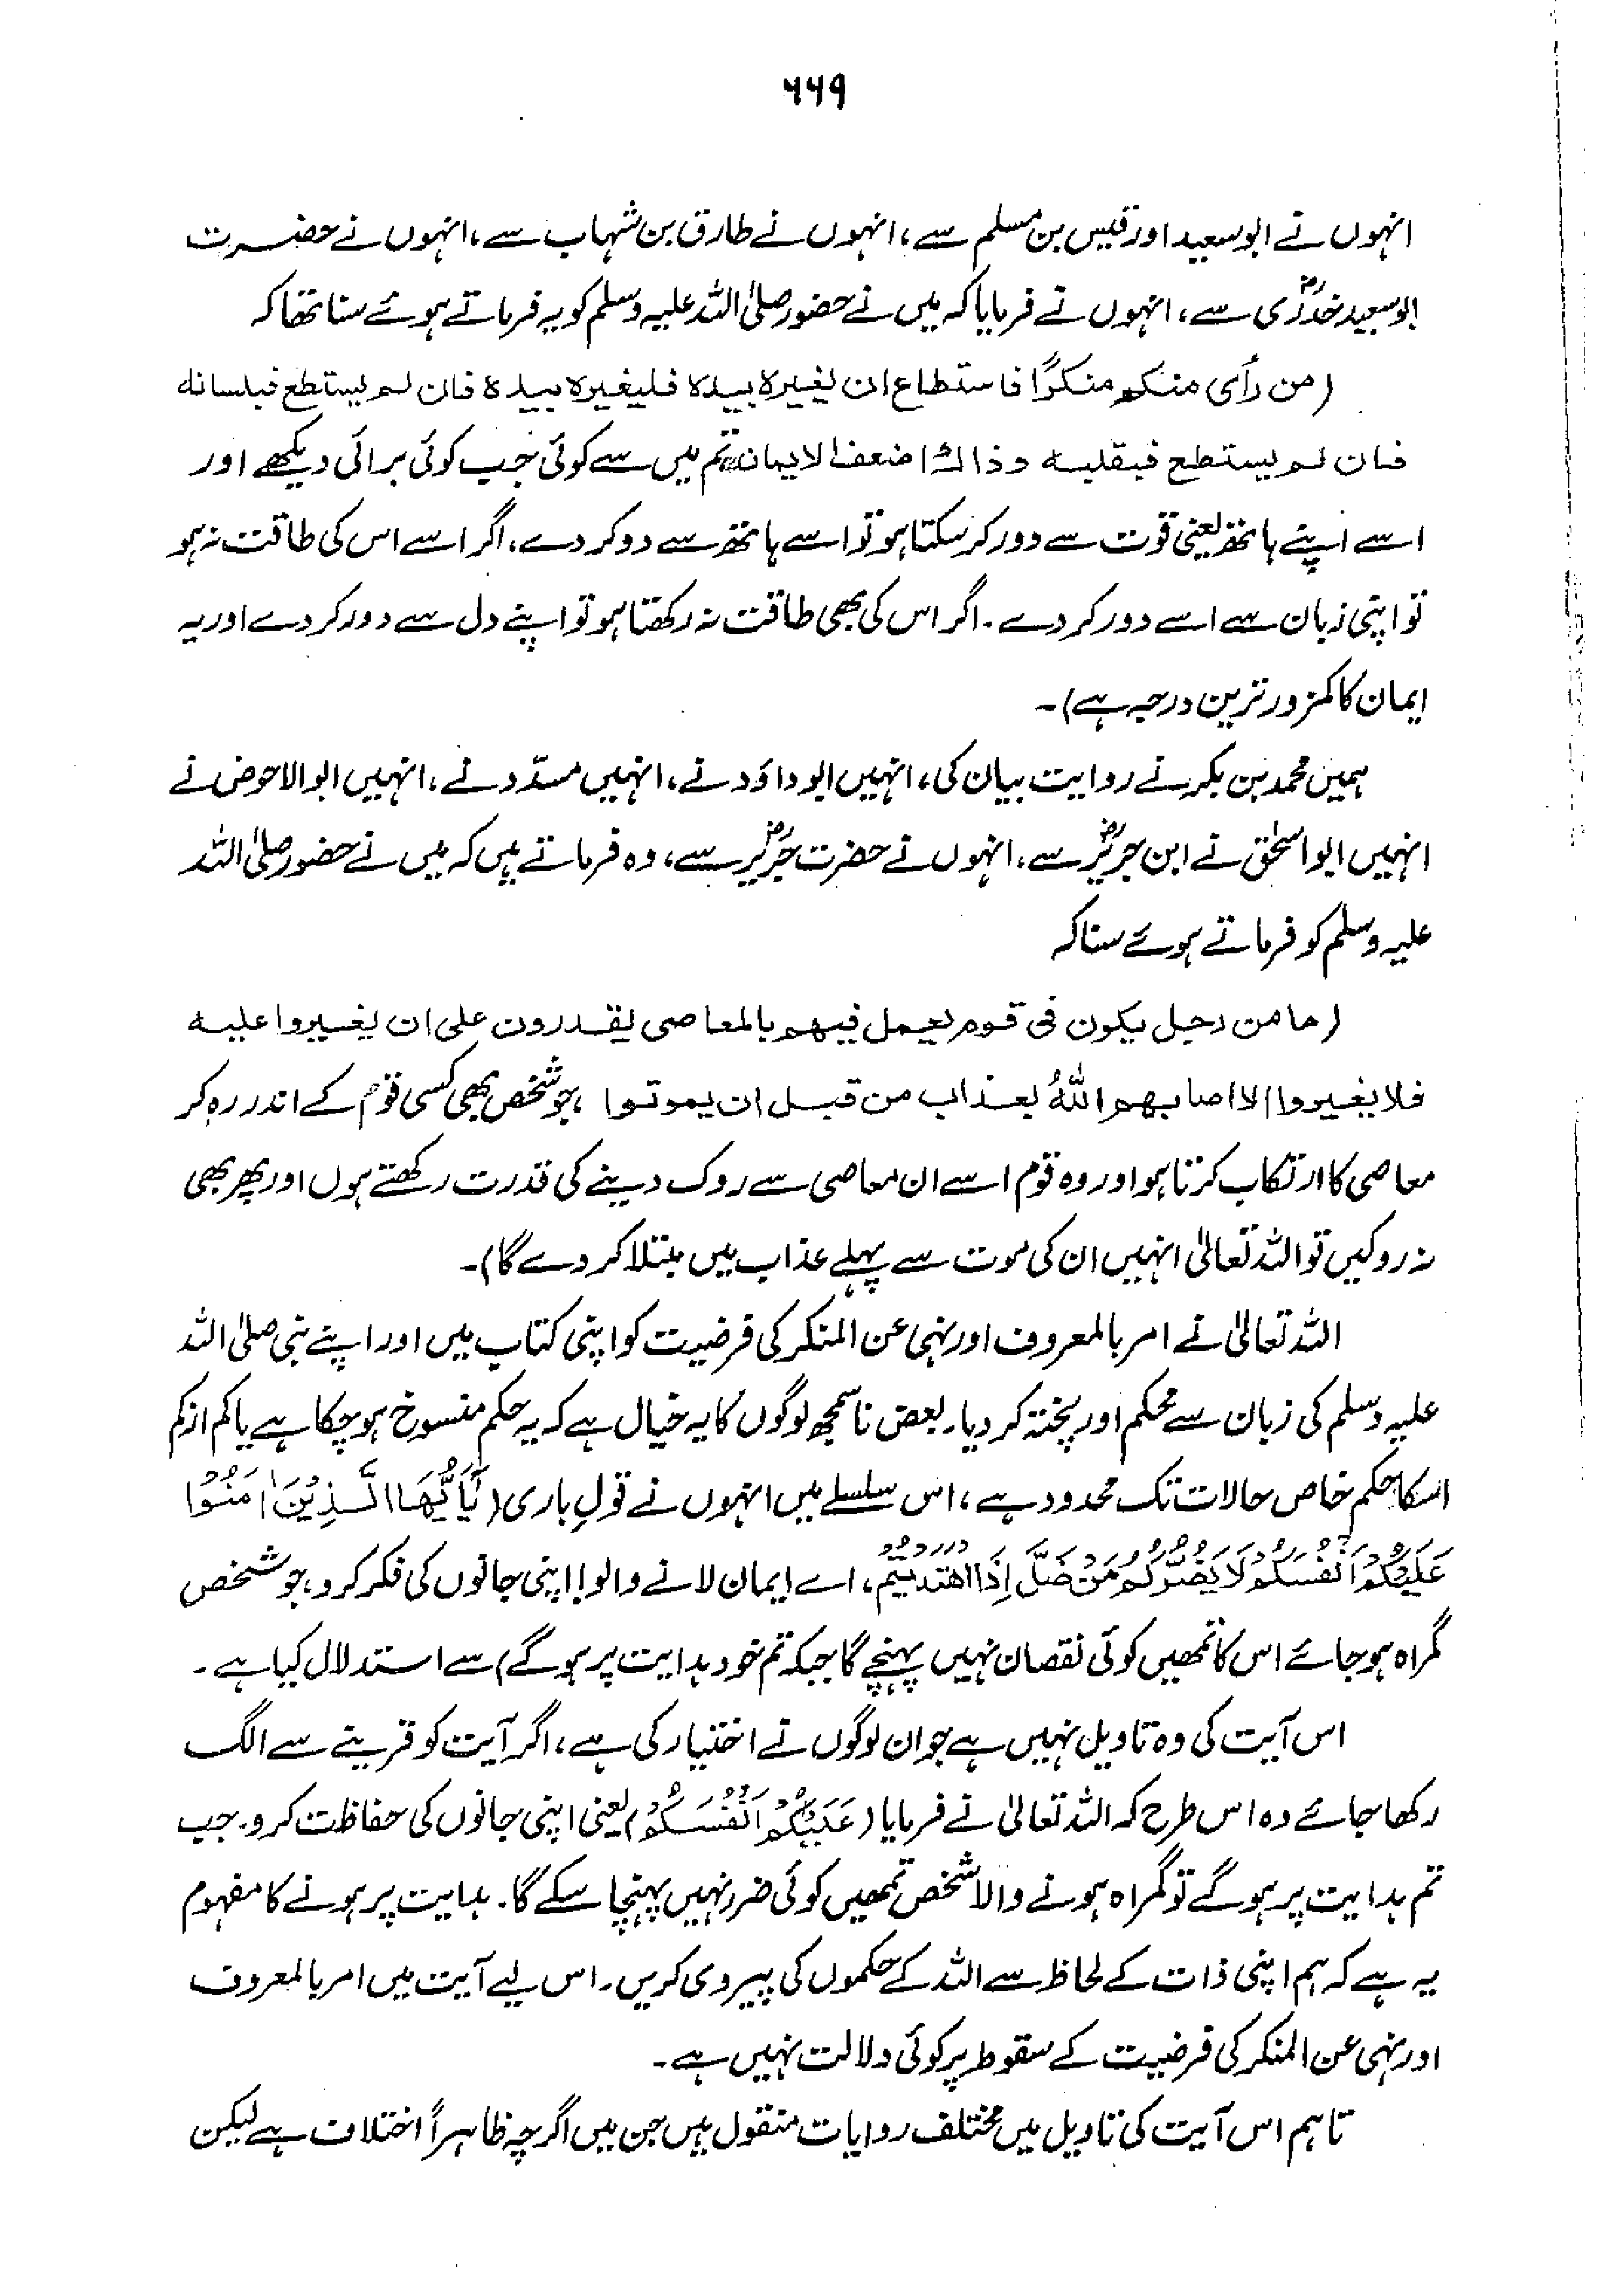 ۶۶۹
انہوں نے ابوسعید اور قیس بن مسلم سے، انہوں نے طارق بن شہاب سے، انہوں نے حضرت
ابوسعید خدریؓ سے، انہوں نے فرمایا کہ میں نے حضور صلی اللہ علیہ وسلم کو یہ فرماتے ہوئے سنا تھا کہ
(من رأی منکم منکرًا فاستطاع ان یغیرہ بیدہ فلیغیرہ بیدہ فان لم یستطع فبلسانہ
فان لم یستطع فبقلبہ وذالک اضعف الایمان، تم میں سے کوئی جب کوئی برائی دیکھے اور
اسے اپنے ہاتھ یعنی قوت سے دور کر سکتا ہو تو اسے ہاتھ سے دو کر دے، اگر اسے اس کی طاقت نہ ہو
تو اپنی زبان سے اسے دور کر دے۔ اگر اس کی بھی طاقت نہ رکھتا ہو تو اپنے دل سے دور کر دے اور یہ
ایمان کا کمزور ترین درجہ ہے)۔
ہمیں محمد بن بکر نے روایت بیان کی، انہیں ابوداؤد نے، انہیں مسدّد نے، انہیں ابوالاحوض نے
انہیں ابواسحٰق نے ابن جریرؓ سے، انہوں نے حضرت جریرؓ سے، وہ فرماتے ہیں کہ میں نے حضور صلی اللہ
علیہ وسلم کو فرماتے ہوئے سنا کہ
(ما من رجل یکون فی قوم یعمل فیہم بالمعاصی یقدرون علی ان یغیروا علیہ
فلا یغیروا الا اصابہم اللہُ بعذاب من قبل ان یموتوا ، جو شخص بھی کسی قوم کے اندر رہ کر
معاصی کا ارتکاب کرتا ہو اور وہ قوم اسے ان معاصی سے روک دینے کی قدرت رکھتے ہوں اور پھر بھی
نہ روکیں تو اللہ تعالیٰ انہیں ان کی موت سے پہلے عذاب میں مبتلا کر دے گا)۔
اللہ تعالیٰ نے امر بالمعروف اور نہی عن المنکر کی فرضیت کو اپنی کتاب میں اور اپنے نبی صلی اللہ
علیہ وسلم کی زبان سے محکم اور پختہ کر دیا۔ بعض ناسمجھ لوگوں کا یہ خیال ہے کہ یہ حکم منسوخ ہو چکا ہے یا کم از کم
اسکا حکم خاص حالات تک محدود ہے، اس سلسلے میں انہوں نے قولِ باری (یٰٓاَیُّهَا الَّذِیْنَ اٰمَنُوْا
عَلَیْكُمْ اَنْفُسَكُمْ لَا یَضُرُّكُمْ مَنْ ضَلَّ اِذَا اهْتَدَیْتُمْ، اے ایمان لانے والو! اپنی جانوں کی فکر کرو، جو شخص
گمراہ ہو جائے اس کا تمھیں کوئی نقصان نہیں پہنچے گا جبکہ تم خود ہدایت پر ہو گے) سے استدلال کیا ہے۔
اس آیت کی وہ تاویل نہیں ہے جو ان لوگوں نے اختیار کی ہے، اگر آیت کو قرینے سے الگ
رکھا جائے وہ اس طرح کہ اللہ تعالیٰ نے فرمایا (عَلَیْكُمْ اَنْفُسَكُمْ) یعنی اپنی جانوں کی حفاظت کرو۔ جب
تم ہدایت پر ہو گے تو گمراہ ہونے والا شخص تمھیں کوئی ضرر نہیں پہنچا سکے گا۔ ہدایت پر ہونے کا مفہوم
یہ ہے کہ ہم اپنی ذات کے لحاظ سے اللہ کے حکموں کی پیروی کریں۔ اس لیے آیت میں امر بالمعروف
اور نہی عن المنکر کی فرضیت کے سقوط پر کوئی دلالت نہیں ہے۔
تاہم اس آیت کی تاویل میں مختلف روایات منقول ہیں جن میں اگرچہ ظاہراً اختلاف ہے لیکن